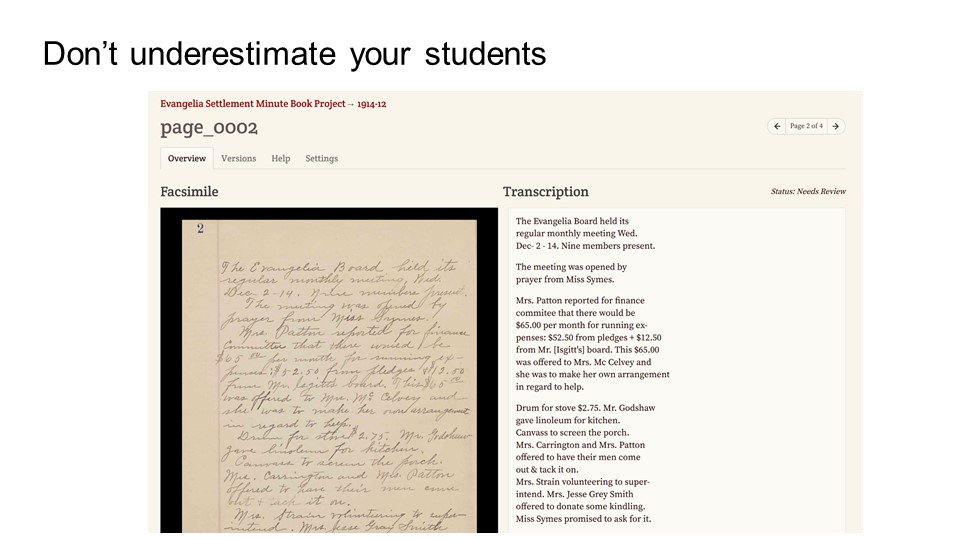 Don't underestimate your students
Evangelia Settlement Minute Book Project → 1914-12
page_0002
← Page 2 of 4 →
Overview Versions Help Settings
Facsimile
Transcription
Status: Needs Review
2
The Evangelia Board held its
regular monthly meeting, Wed.
Dec 2-14. Nine members present.
The meeting was opened by
prayer from Miss Symes.
Mrs. Patton reported for finance
Committee that there would be
$65 00 per month for running ex-
penses: $52.50 from pledges & $12.50
from Mr. board. This $65 00
was offered to Mrs. Mc Celvey and
she was to make her own arrangement
in regard to help.
Drum for stove $2.75. Mr. Godshaw
gave linoleum for kitchen.
Canvass to screen the porch.
Mrs. Carrington and Mrs. Patton
offered to have their men come
out & tack it on.
Mrs. Strain volunteering to super-
intend. Mrs. Jesse Gray Smith
The Evangelia Board held its
regular monthly meeting Wed.
Dec- 2 - 14. Nine members present.
The meeting was opened by
prayer from Miss Symes.
Mrs. Patton reported for finance
commitee that there would be
$65.00 per month for running ex-
penses: $52.50 from pledges + $12.50
from Mr. [Isgitt's] board. This $65.00
was offered to Mrs. Mc Celvey and
she was to make her own arrangement
in regard to help.
Drum for stove $2.75. Mr. Godshaw
gave linoleum for kitchen.
Canvass to screen the porch.
Mrs. Carrington and Mrs. Patton
offered to have their men come
out & tack it on.
Mrs. Strain volunteering to super-
intend. Mrs. Jesse Grey Smith
offered to donate some kindling.
Miss Symes promised to ask for it.